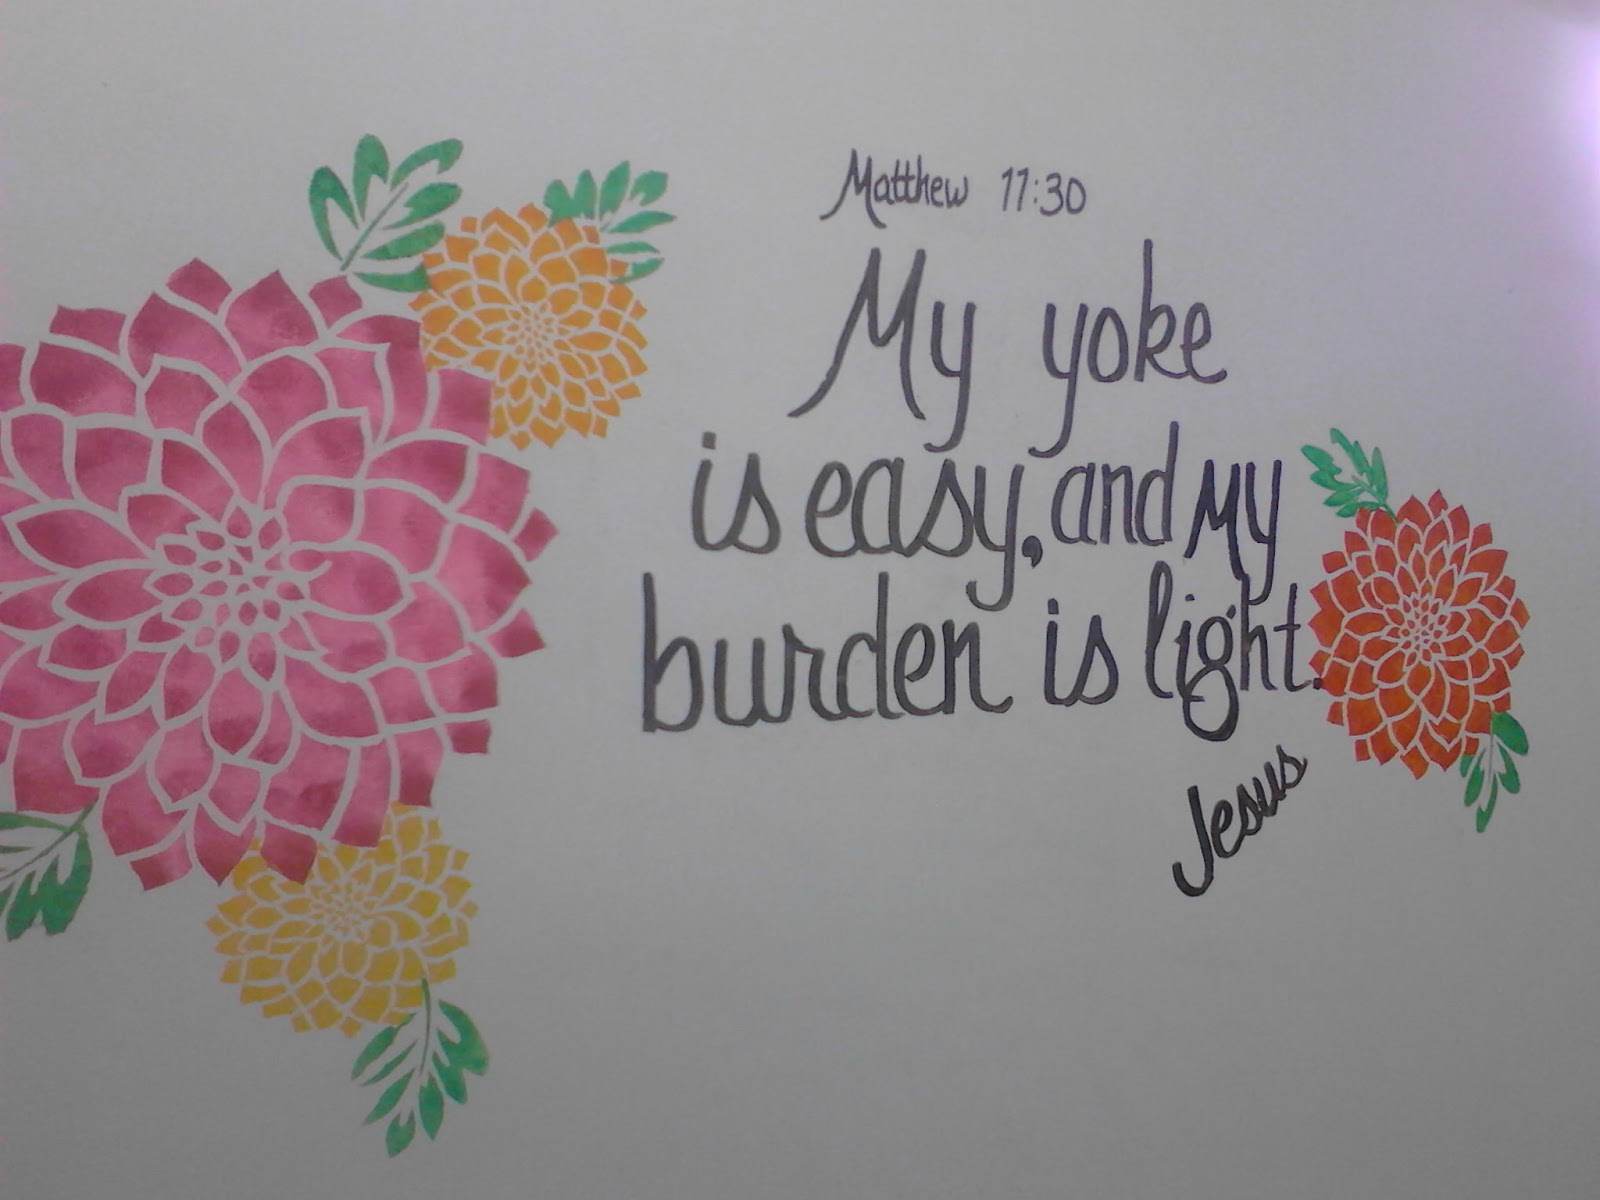 Matthew 11:30
My yoke
is easy, and My
burden is light.
Jesus